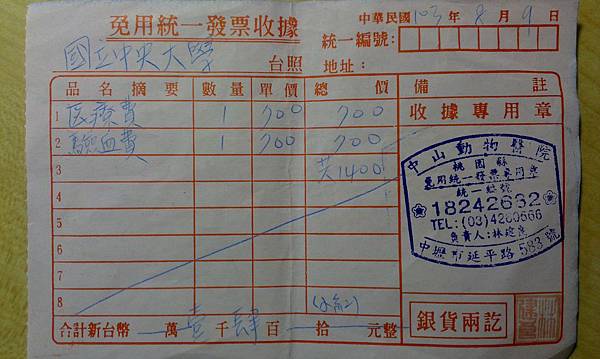 免用統一發票收據
中華民國103年8月9日
統一編號:
國立中央大學 台照 地址:
品名摘要 數量 單價 總價 備註
1 医療費 1 700 700 收據專用章
2 驗血費 1 700 700
3 共1400
4
5
6
7
8
合計新台幣 萬壹千肆百 拾 元整
銀貨兩訖
中山動物醫院
桃園縣
免用統一發票專用章
統一編號
18242662
TEL:(03)4260666
負責人:林
中壢市延平路583號